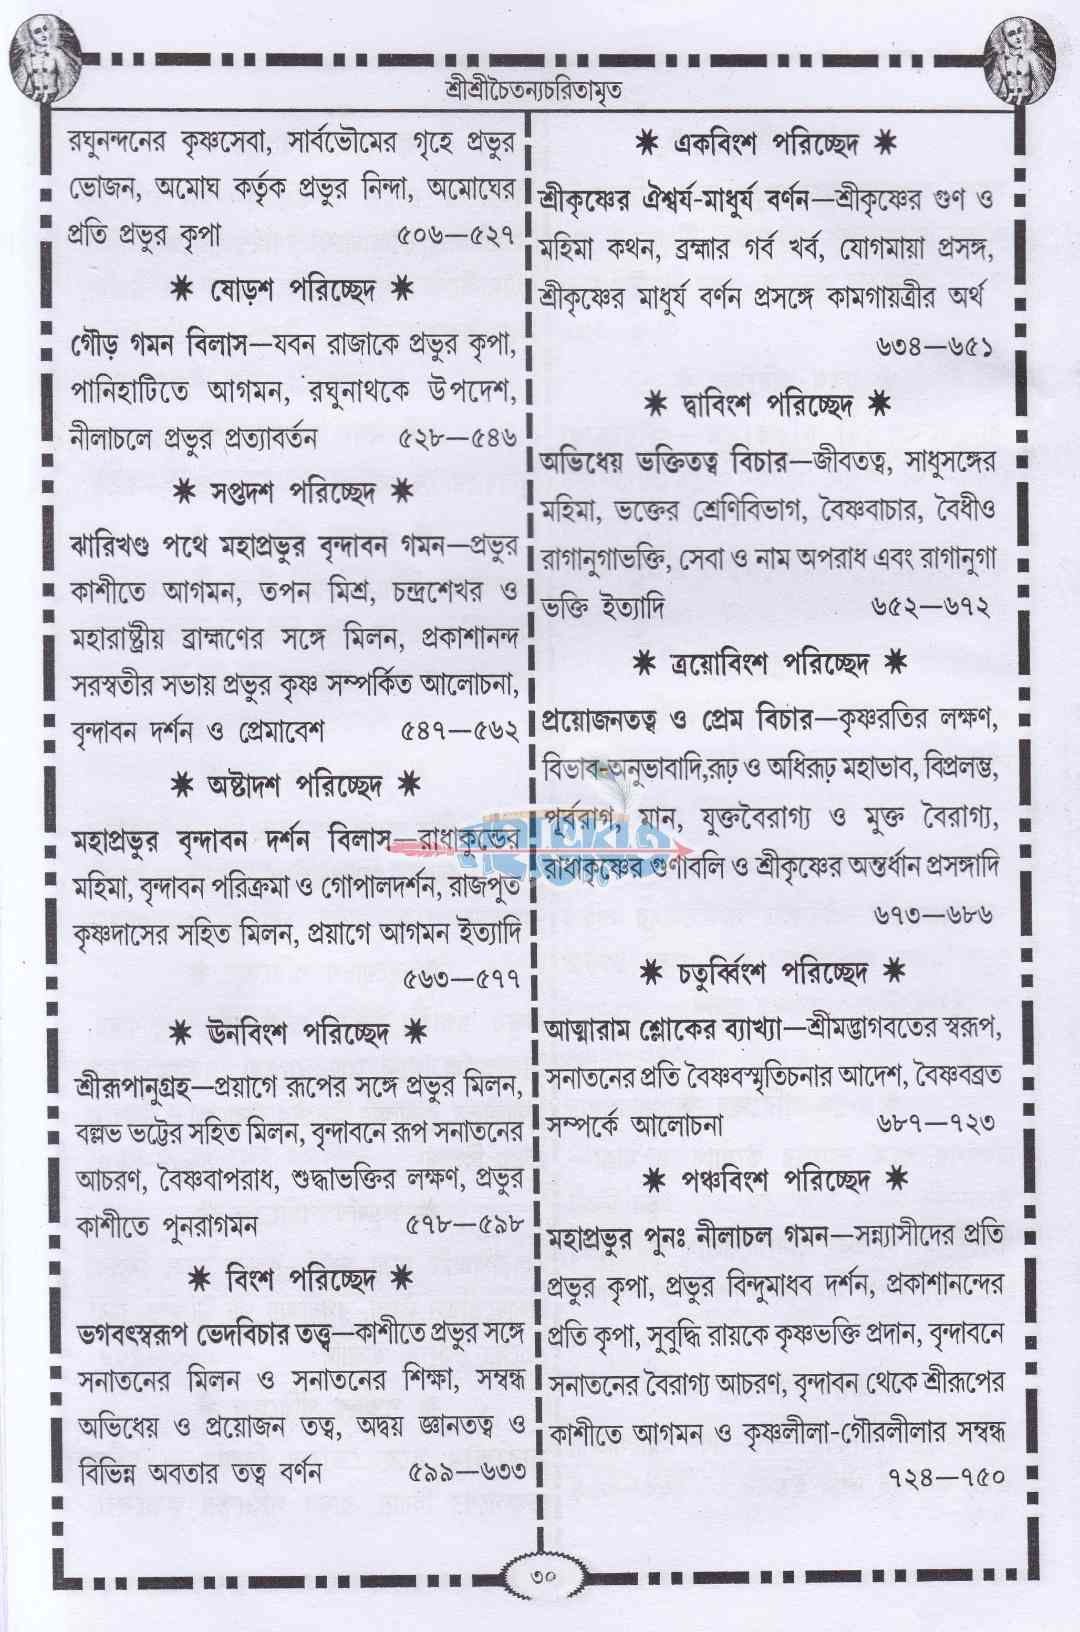 শ্রীশ্রীচৈতন্যচরিতামৃত
রঘুনন্দনের কৃষ্ণসেবা, সার্বভৌমের গৃহে প্রভুর
ভোজন, অমোঘ কর্তৃক প্রভুর নিন্দা, অমোঘের
প্রতি প্রভুর কৃপা ৫০৬—৫২৭
✷ ষোড়শ পরিচ্ছেদ ✷
গৌড় গমন বিলাস—যবন রাজাকে প্রভুর কৃপা,
পানিহাটিতে আগমন, রঘুনাথকে উপদেশ,
নীলাচলে প্রভুর প্রত্যাবর্তন ৫২৮—৫৪৬
✷ সপ্তদশ পরিচ্ছেদ ✷
ঝারিখণ্ড পথে মহাপ্রভুর বৃন্দাবন গমন—প্রভুর
কাশীতে আগমন, তপন মিশ্র, চন্দ্রশেখর ও
মহারাষ্ট্রীয় ব্রাহ্মণের সঙ্গে মিলন, প্রকাশানন্দ
সরস্বতীর সভায় প্রভুর কৃষ্ণ সম্পর্কিত আলোচনা,
বৃন্দাবন দর্শন ও প্রেমাবেশ ৫৪৭—৫৬২
✷ অষ্টাদশ পরিচ্ছেদ ✷
মহাপ্রভুর বৃন্দাবন দর্শন বিলাস—রাধাকুন্ডের
মহিমা, বৃন্দাবন পরিক্রমা ও গোপালদর্শন, রাজপুত
কৃষ্ণদাসের সহিত মিলন, প্রয়াগে আগমন ইত্যাদি
৫৬৩—৫৭৭
✷ ঊনবিংশ পরিচ্ছেদ ✷
শ্রীরূপানুগ্রহ—প্রয়াগে রূপের সঙ্গে প্রভুর মিলন,
বল্লভ ভট্টের সহিত মিলন, বৃন্দাবনে রূপ সনাতনের
আচরণ, বৈষ্ণবাপরাধ, শুদ্ধাভক্তির লক্ষণ, প্রভুর
কাশীতে পুনরাগমন ৫৭৮—৫৯৮
✷ বিংশ পরিচ্ছেদ ✷
ভগবৎস্বরূপ ভেদবিচার তত্ত্ব—কাশীতে প্রভুর সঙ্গে
সনাতনের মিলন ও সনাতনের শিক্ষা, সম্বন্ধ
অভিধেয় ও প্রয়োজন তত্ব, অদ্বয় জ্ঞানতত্ব ও
বিভিন্ন অবতার তত্ব বর্ণন ৫৯৯—৬৩৩
✷ একবিংশ পরিচ্ছেদ ✷
শ্রীকৃষ্ণের ঐশ্বর্য-মাধুর্য বর্ণন—শ্রীকৃষ্ণের গুণ ও
মহিমা কথন, ব্রহ্মার গর্ব খর্ব, যোগমায়া প্রসঙ্গ,
শ্রীকৃষ্ণের মাধুর্য বর্ণন প্রসঙ্গে কামগায়ত্রীর অর্থ
৬৩৪—৬৫১
✷ দ্বাবিংশ পরিচ্ছেদ ✷
অভিধেয় ভক্তিতত্ব বিচার—জীবতত্ব, সাধুসঙ্গের
মহিমা, ভক্তের শ্রেণিবিভাগ, বৈষ্ণবাচার, বৈধীও
রাগানুগাভক্তি, সেবা ও নাম অপরাধ এবং রাগানুগা
ভক্তি ইত্যাদি ৬৫২—৬৭২
✷ ত্রয়োবিংশ পরিচ্ছেদ ✷
প্রয়োজনতত্ব ও প্রেম বিচার—কৃষ্ণরতির লক্ষণ,
বিভাব-অনুভাবাদি,রূঢ় ও অধিরূঢ় মহাভাব, বিপ্রলম্ভ,
পূর্বরাগ, মান, যুক্তবৈরাগ্য ও মুক্ত বৈরাগ্য,
রাধাকৃষ্ণের গুণাবলি ও শ্রীকৃষ্ণের অন্তর্ধান প্রসঙ্গাদি
৬৭৩—৬৮৬
✷ চতুর্ব্বিংশ পরিচ্ছেদ ✷
আত্মারাম শ্লোকের ব্যাখ্যা—শ্রীমদ্ভাগবতের স্বরূপ,
সনাতনের প্রতি বৈষ্ণবস্মৃতিচনার আদেশ, বৈষ্ণবব্রত
সম্পর্কে আলোচনা ৬৮৭—৭২৩
✷ পঞ্চবিংশ পরিচ্ছেদ ✷
মহাপ্রভুর পুনঃ নীলাচল গমন—সন্ন্যাসীদের প্রতি
প্রভুর কৃপা, প্রভুর বিন্দুমাধব দর্শন, প্রকাশানন্দের
প্রতি কৃপা, সুবুদ্ধি রায়কে কৃষ্ণভক্তি প্রদান, বৃন্দাবনে
সনাতনের বৈরাগ্য আচরণ, বৃন্দাবন থেকে শ্রীরূপের
কাশীতে আগমন ও কৃষ্ণলীলা-গৌরলীলার সম্বন্ধ
৭২৪—৭৫০
৩০